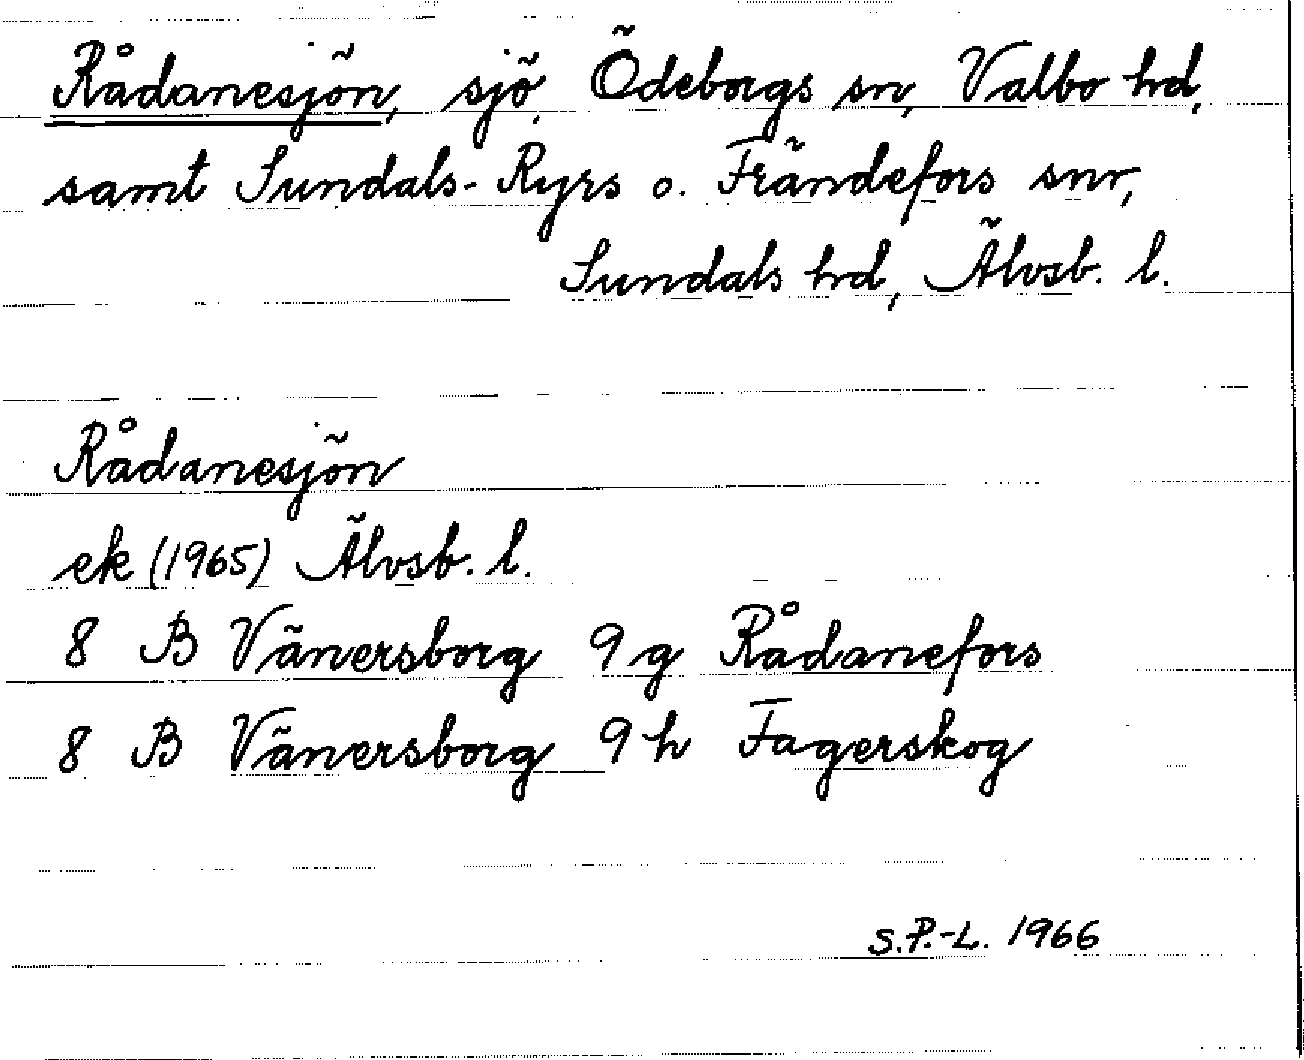 Rådanesjön, sjö, Ödeborgs sn, Valbo hd,
samt Sundals-Ryrs o. Frändefors snr,
Sundals hd, Älvsb. l.
Rådanesjön
ek (1965) Älvsb. l.
8 B Vänersborg 9 g Rådanefors
8 B Vänersborg 9 h Fagerskog
S.P.-L. 1966